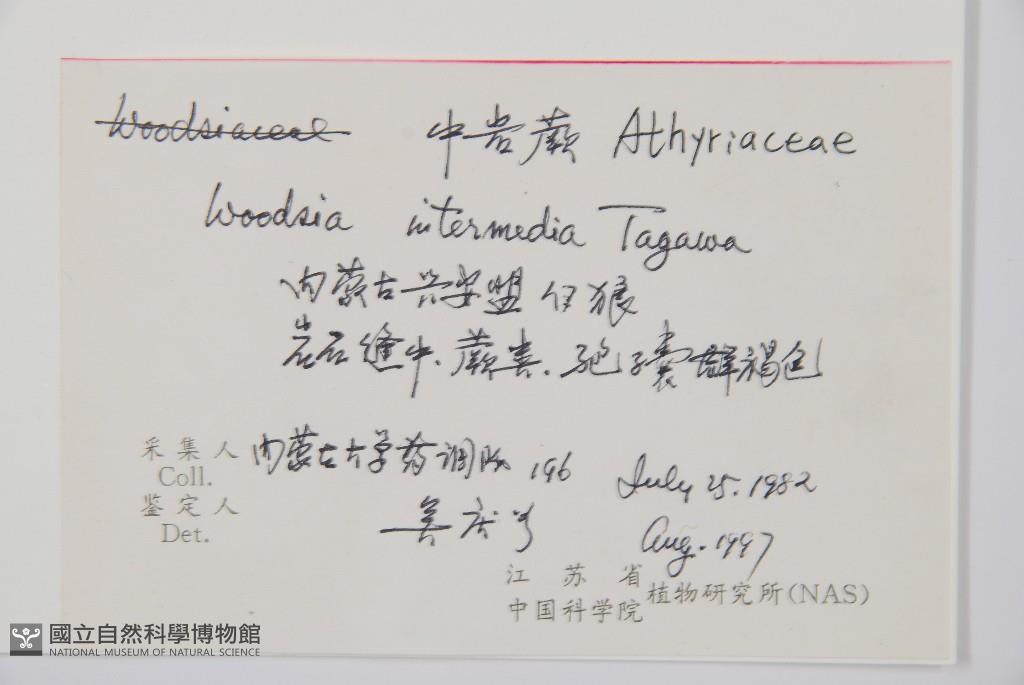 Woodsiaceae 中岩蕨 Athyriaceae
Woodsia intermedia Tagawa
内蒙古兴安盟 伊狼
岩石缝中、蕨类、孢子囊群褐色
采集人 内蒙古大学药调队 196 July 25. 1982
Coll.
鉴定人 Aug. 1997
Det.
江苏省
中国科学院 植物研究所(NAS)
國立自然科學博物館
NATIONAL MUSEUM OF NATURAL SCIENCE